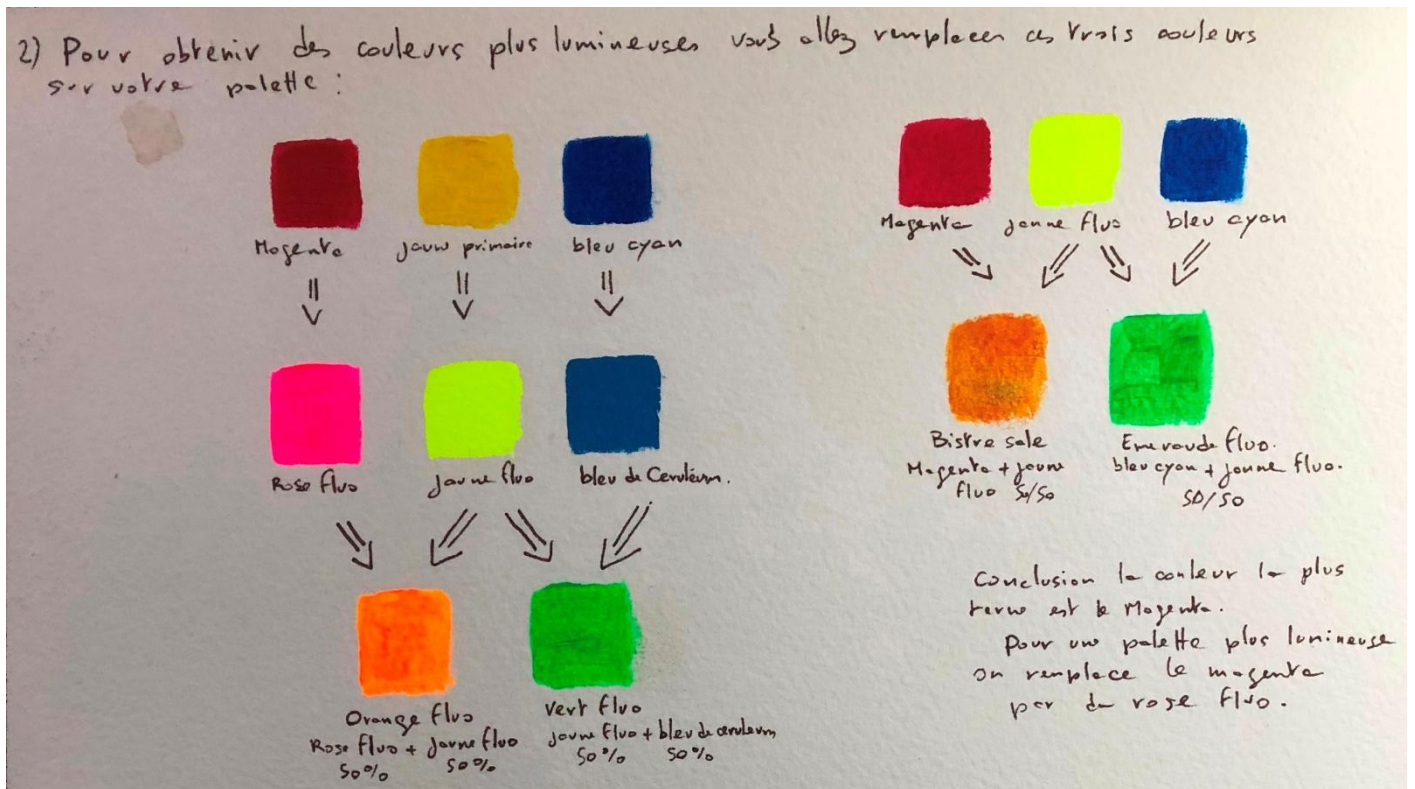 2) Pour obtenir des couleurs plus lumineuses vous allez remplacer ces trois couleurs
sur votre palette :
Magenta
jaune primaire
bleu cyan
Rose fluo
Jaune fluo
bleu de Ceruléum.
Orange fluo
Rose fluo + Jaune fluo
50% 50%
Vert fluo
jaune fluo + bleu de ceruleum
50% 50%
Magenta
jaune fluo
bleu cyan
Bistre sale
Magenta + jaune
fluo 50/50
Emeraude fluo.
bleu cyan + jaune fluo.
50/50
Conclusion la couleur la plus
terne est le Magenta.
Pour une palette plus lumineuse
on remplace le magenta
par du rose fluo.